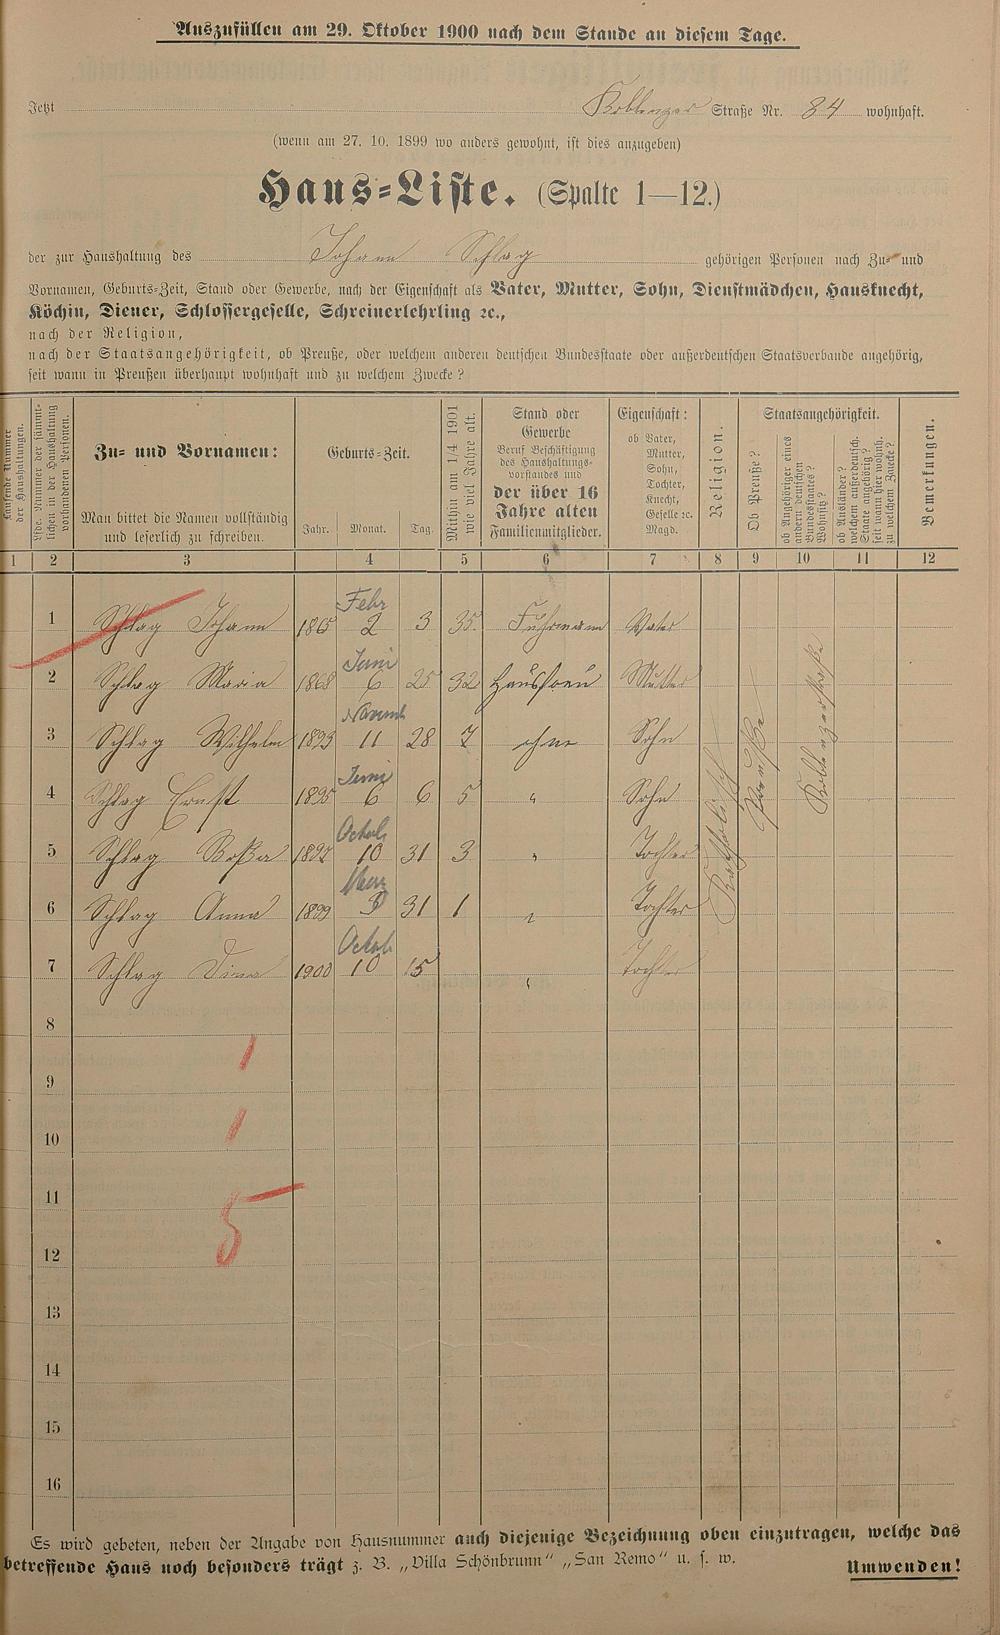 Auszufüllen am 29. Oktober 1900 nach dem Stande an diesem Tage.
Jetzt Koblenzer Straße Nr. 84 wohnhaft.
(wenn am 27. 10. 1899 wo anders gewohnt, ist dies anzugeben)
Haus-Liste. (Spalte 1—12.)
der zur Haushaltung des Johann Schlag gehörigen Personen nach Zu- und
Vornamen, Geburts-Zeit, Stand oder Gewerbe, nach der Eigenschaft als Vater, Mutter, Sohn, Dienstmädchen, Hausknecht,
Köchin, Diener, Schlossergeselle, Schreinerlehrling ꝛc.,
nach der Religion,
nach der Staatsangehörigkeit, ob Preuße, oder welchem anderen deutschen Bundesstaate oder außerdeutschen Staatsverbande angehörig,
seit wann in Preußen überhaupt wohnhaft und zu welchem Zwecke?
Laufende Nummer der Haushaltungen.
Lfde. Nummer der sämmtlichen in der Haushaltung vorhandenen Personen.
Zu- und Vornamen:
Man bittet die Namen vollständig
und leserlich zu schreiben.
Geburts-Zeit.
Jahr. Monat. Tag.
Mithin am 1/4 1901 wie viel Jahre alt.
Stand oder
Gewerbe
Beruf Beschäftigung
des Haushaltungs-
vorstandes und
der über 16
Jahre alten
Familienmitglieder.
Eigenschaft:
ob Vater,
Mutter,
Sohn,
Tochter,
Knecht,
Geselle ꝛc.
Magd.
Religion.
Staatsangehörigkeit.
Ob Preuße?
ob Angehöriger eines
andern deutschen
Bundesstaates?
Wohnsitz?
ob Ausländer?
welchem außerdeutsch.
Staate angehörig?
seit wann hier wohnh.
zu welchem Zwecke?
Bemerkungen.
1 2 3 4 5 6 7 8 9 10 11 12
Febr
1 Schlag Johann 1865 2 3 35. Fuhrmann Vater
Juni
2 Schlag Maria 1868 6 25 32 Hausfrau Mutter
Novemb
3 Schlag Wilhelm 1893 11 28 7 ohne Sohn
Juni
4 Schlag Ernst 1895 6 6 5 " Sohn
Octob
5 Schlag Rosa 1897 10 31 3 " Tochter
Merz
6 Schlag Anna 1899 3 31 1 " Tochter
Octob
7 Schlag 1900 10 15 " Tochter
Katholisch
Preuße
Koblenzerstraße
8
1
9
10 1
11
12 5
13
14
15
16
Es wird gebeten, neben der Angabe von Hausnummer auch diejenige Bezeichnung oben einzutragen, welche das
betreffende Haus noch besonders trägt z. B. „Villa Schönbrunn“ „San Remo“ u. s. w. Umwenden!